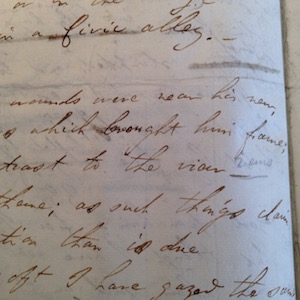 in a civic alley. —
wounds were near his
which brought him fame;
trast to the view
theme; as such things claim
tion than is due
oft I have gazed the